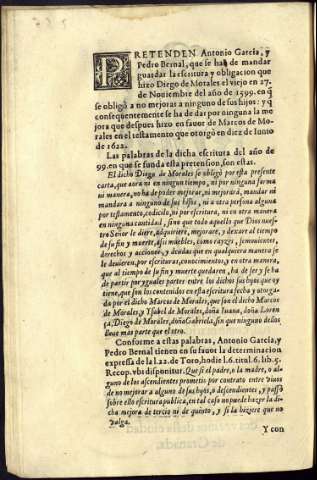 PRETENDEN Antonio Garcia, y
Pedro Bernal, que se ha de mandar
guardar la escritura y obligacion que
hizo Diego de Morales el viejo en 27.
de Nouiembre del año de 1599. en q̃
se obligò a no mejorar a ninguno de sus hijos: y q̃
conseqüentemente se ha de dar por ninguna la me
jora que despues hizo en fauor de Marcos de Mo-
rales en el testamento que otorgò en diez de Iunio
de 1622.
Las palabras de la dicha escritura del año de
99. en que se funda esta pretension, son estas.
El dicho Diego de Morales se obligò por esta presente
carta, que aora ni en ningun tiempo, ni por ninguna forma
ni manera, no ha de poder mejorar, ni mejorarà, mandar ni
mandara a ninguno de sus hijos, ni a otra persona alguna
por testamento, codicilo, ni por escritura, ni en otra manera
en ninguna cantidad, sino que todo aquello que Dios nues-
tro Señor le diere, adquiriere, mejorare, y dexare al tiempo
de su fin y muerte, assi muebles, como rayzes, semouientes,
derechos y acciones, y deudas que en qualquiera manera se
le deuieren, por escrituras, conocimientos, y en otra manera,
que al tiempo de su fin y muerte quedaren, ha de ser y se ha
de partir por yguales partes entre los dichos sus hijos que oy
tiene, que son los contenidos en esta escritura fecha y otorga-
da por el dicho Marcos de Morales, que son el dicho Marcos
de Morales, y Ysabel de Morales, doña Iuana, doña Loren
ça, Diego de Morales, doña Gabriela, sin que ninguno dellos
lleue mas parte que el otro.
Conforme a estas palabras, Antonio Garcia, y
Pedro Bernal tienen en su fauor la determinacion
expressa de la l. 22. de Toro, hodie l. 6. titul. 6. lib. 5.
Recop. vbi disponitur. Que si el padre, o la madre, o al-
guno de los ascendientes prometio por contrato entre viuos
de no mejorar a alguno de sus hijos, o descendientes, y passò
sobre ello escritura publica, en tal caso no pueda hazer la di-
cha mejora de tercio ni de quinto, y si la hiziere que no
valga.
Y con